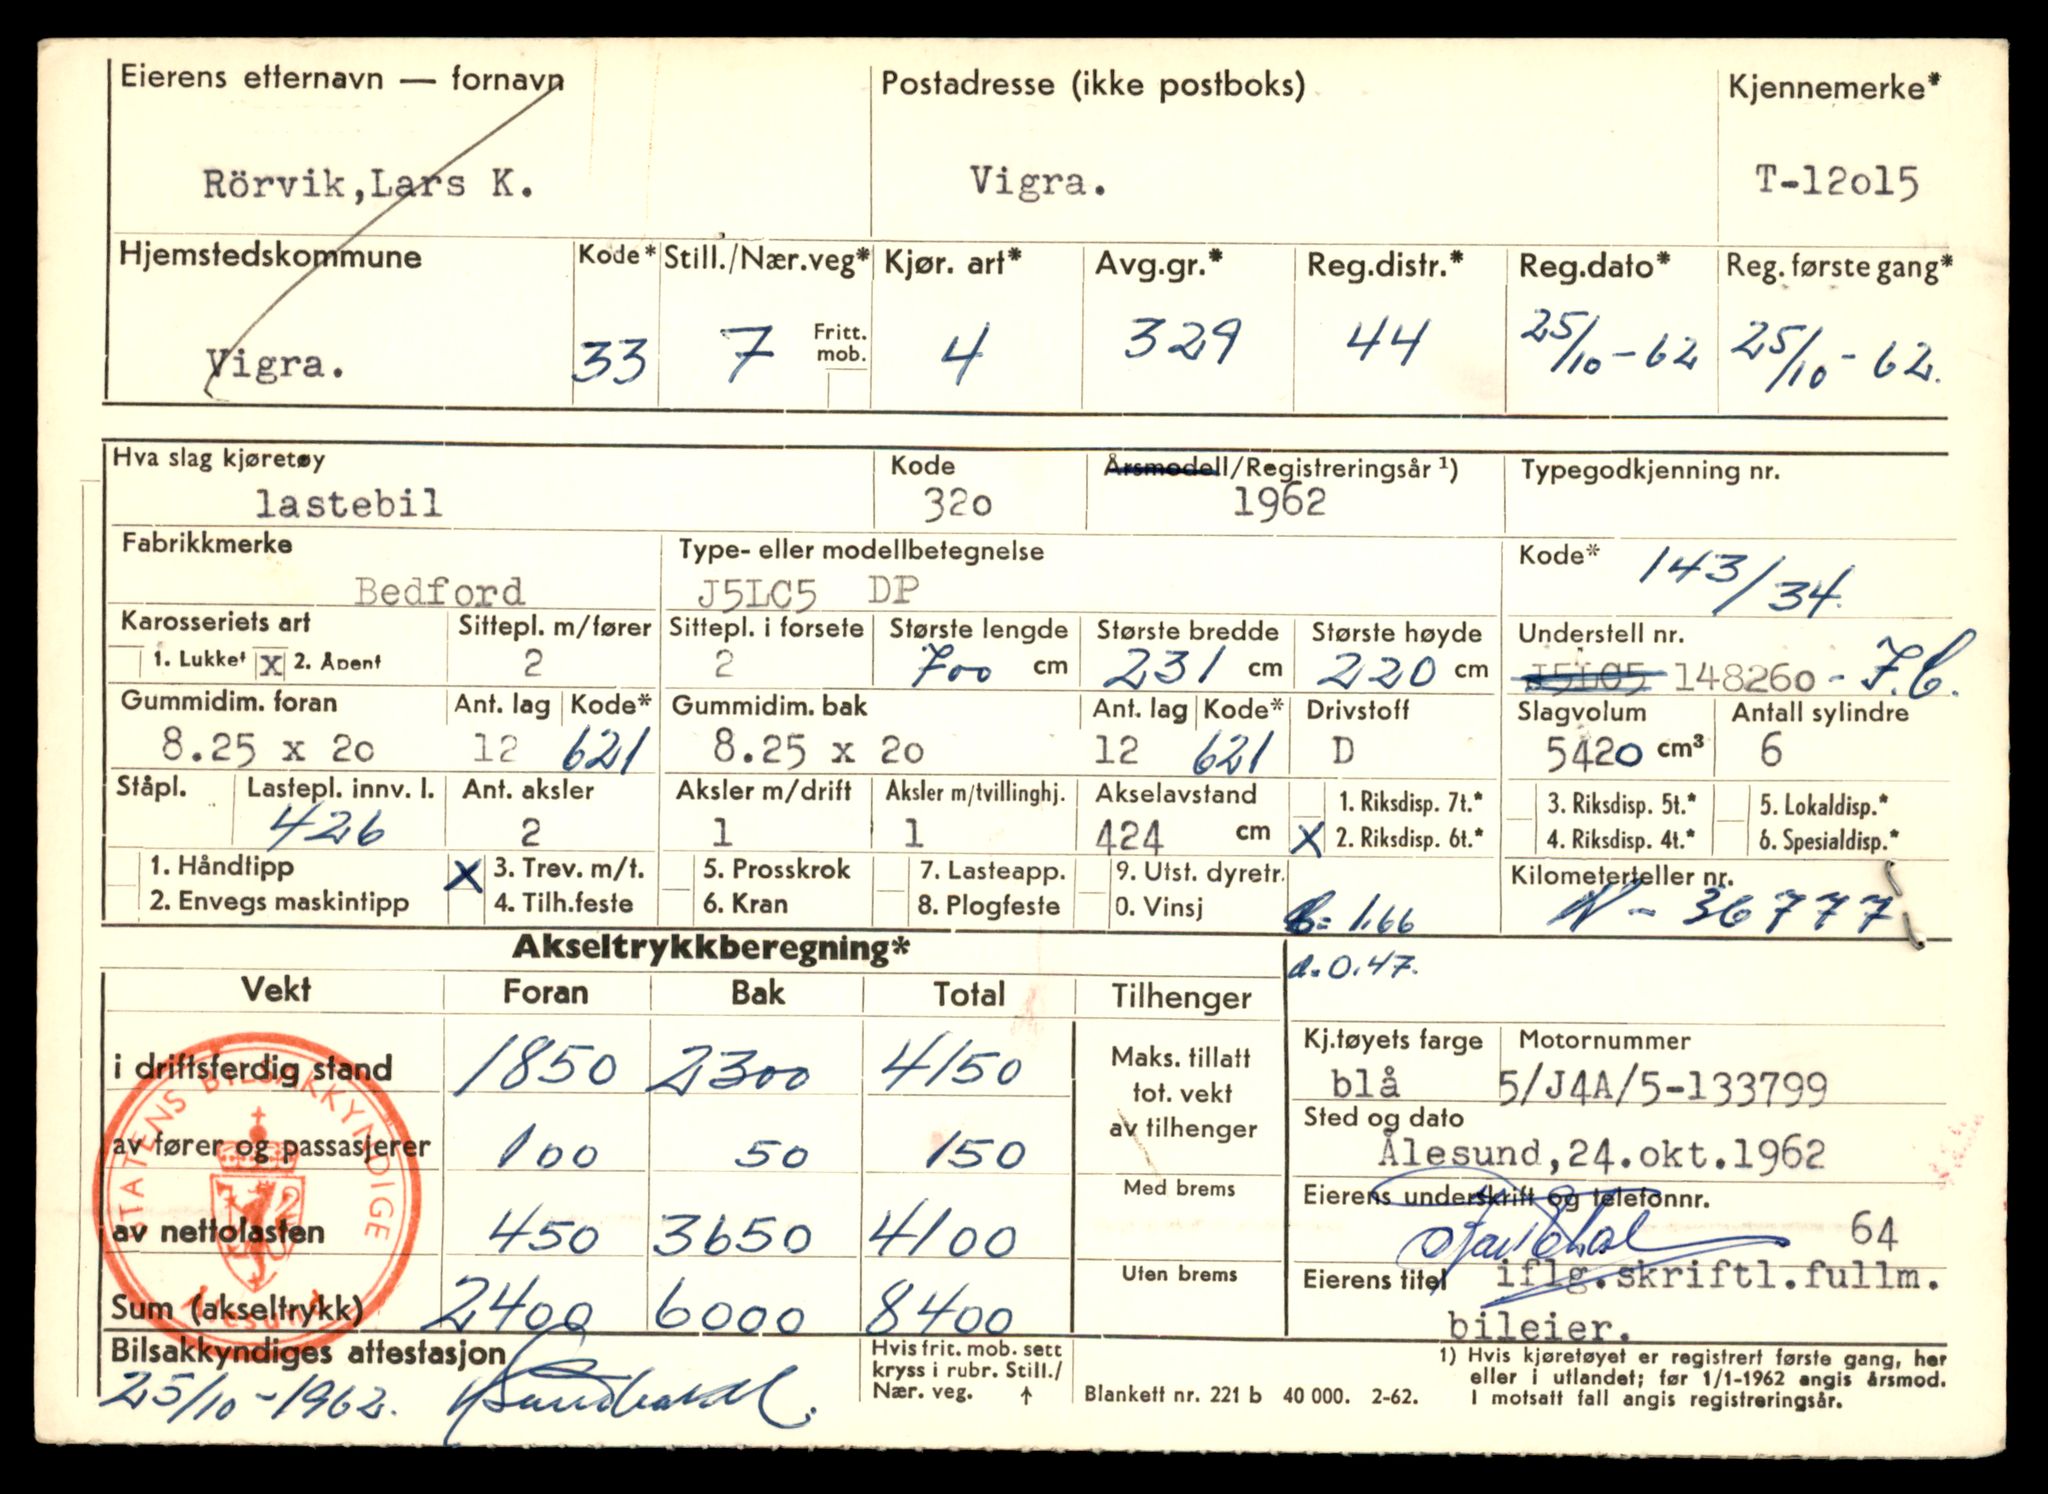 Eierens etternavn — fornavn Postadresse (ikke postboks) Kjennemerke*
Rörvik,Lars K. Vigra. T-12o15
Hjemstedskommune Kode* Still./Nær.veg* Kjør. art* Avg.gr.* Reg.distr.* Reg.dato* Reg. første gang*
Vigra. 33 7 Fritt. mob. 4 329 44 25/10-62 25/10-62.
Hva slag kjøretøy Kode Årsmodell/Registreringsår ¹) Typegodkjenning nr.
lastebil 32o 1962
Fabrikkmerke Type- eller modellbetegnelse Kode* 143/34.
Bedford J5LC5 DP
Karosseriets art Sittepl. m/fører Sittepl. i forsete Største lengde Største bredde Største høyde Understell nr.
1. Lukket x 2. Åpent 2 2 700 cm 231 cm 220 cm J5LC5 14826o - F.C.
Gummidim. foran Ant. lag Kode* Gummidim. bak Ant. lag Kode* Drivstoff Slagvolum Antall sylindre
8.25 x 2o 12 621 8.25 x 2o 12 621 D 5420 cm³ 6
Ståpl. Lastepl. innv. l. Ant. aksler Aksler m/drift Aksler m/tvillinghj. Akselavstand 1. Riksdisp. 7t.* 3. Riksdisp. 5t.* 5. Lokaldisp.*
426 2 1 1 424 cm X 2. Riksdisp. 6t.* 4. Riksdisp. 4t.* 6. Spesialdisp.*
1. Håndtipp X 3. Trev. m/t. 5. Prosskrok 7. Lasteapp. 9. Utst. dyretr. Kilometerteller nr.
2. Envegs maskintipp 4. Tilh.feste 6. Kran 8. Plogfeste 0. Vinsj b=1.66 N - 36777
Akseltrykkberegning* a.0.47.
Vekt Foran Bak Total Tilhenger
i driftsferdig stand 1850 2300 4150 Maks. tillatt tot. vekt av tilhenger Kj.tøyets farge Motornummer
blå 5/J4A/5-133799
av fører og passasjerer 100 50 150 Sted og dato
Ålesund,24.okt.1962
Med brems Eierens underskrift og telefonnr.
av nettolasten 450 3650 4100 64
Uten brems Eierens titel iflg.skriftl.fullm.
Sum (akseltrykk) 2400 6000 8400 bileier.
STATENS BILSAKKYNDIGE
Ålesund
Bilsakkyndiges attestasjon Hvis frit. mob. sett kryss i rubr. Still./ Nær. veg. ↑ Blankett nr. 221 b 40 000. 2-62.
25/10-1962.
1) Hvis kjøretøyet er registrert første gang, her
eller i utlandet; før 1/1-1962 angis årsmod.
I motsatt fall angis registreringsår.